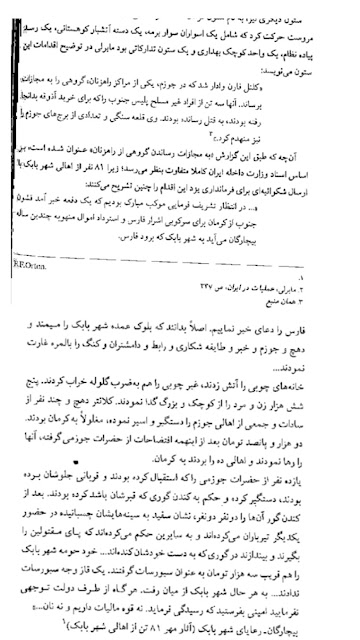 ستون دیگری نیز، به نام ستون
مروست حرکت کرد که شامل یک اسواران سوار برمه، یک دسته آتشبار کوهستانی، یک رسد
پیاده نظام، یک واحد کوچک بهداری و یک ستون تدارکاتی بود مابرلی در توضیح اقدامات این
ستون می‌نویسد:
«کلنل فارن وادار شد که در جوزم، یکی از مراکز راهزنان، گروهی را به مجازات
برساند. آنها سه تن از افراد غیر مسلح پلیس جنوب را که برای خرید آذوقه بدانجا
رفته بودند، به قتل رسانده بودند. وی قلعه سنگی و تعدادی از برج‌های جوزم را
نیز منهدم کرد.»۲
آن‌چه که طبق این گزارش «به مجازات رساندن گروهی از راهزنان» عنوان شده است، بر
اساس اسناد وزارت داخله ایران کاملا متفاوت بنظر می‌رسد؛ زیرا ۸۱ نفر از اهالی شهر بابک با
ارسال شکوائیه‌ای برای فرمانداری بود این اقدام را چنین تشریح می‌کنند:
«... در انتظار تشریف فرمایی موکب مبارک بودیم که یک دفعه خبر آمد قشون
جنوب از کرمان برای سرکوبی اشرار فارس و استرداد اموال منهوبه چندین ساله
بیچارگان می‌آید به شهر بابک که برود فارس.
۱. F.E.Orten.
۲. مابرلی، عملیات در ایران، ص ۳۳۷
۳. همان منبع
فارس را دعای خیر نماییم. اصلاً بدانند که بلوک عمده شهر بابک را میمند و
دهج و جوزم و خبر و طایفه شکاری و رابط و دامشتران و کنگ را بالمره غارت
نمودند...
خانه‌های چوبی را آتش زدند، غیر چوبی را هم به‌ضرب گلوله خراب کردند. پنج
شش هزار زن و مرد را از کوچک و بزرگ گدا نمودند. کلانتر دهج و چند نفر از
سادات و جمعی از اهالی جوزم را دستگیر و اسیر نموده، مغلولاً به کرمان بردند.
دو هزار و پانصد تومان بعد از اینهمه افتضاحات از حضرات جوزمی گرفته، آنها
را رها نمودند و اهالی ده را بردند به کرمان.
یازده نفر از حضرات جوزمی را که استقبال کرده بودند و قربانی جلوشان برده
بودند، دستگیر کرده و حکم به کندن گوری که قبرشان باشد کرده بودند. بعد از
کندن گور آن‌ها را دونفر دونفر، نشان سفید به سینه‌هایشان چسبانیده در حضور
یکدیگر تیرباران می‌کرده‌اند و به سایرین حکم می‌کرده‌اند که پای مقتولین را
بگیرند و بیندازند در گوری که به دست خودشان کنده‌اند... خود حومه شهر بابک
را هم قریب سه هزار تومان به عنوان سیورسات گرفتند. یک قاز وجه سیورسات
ندادند... به هر حال شهر بابک از میان رفت. هرگاه از طرف دولت توجهی
نفرمایید امینی بفرستید که رسیدگی فرماید. نه قوه مالیات داریم و نه نان...
بیچارگان ـ رعایای شهر بابک (آثار مهر ۸۱ تن از اهالی شهر بابک)۱